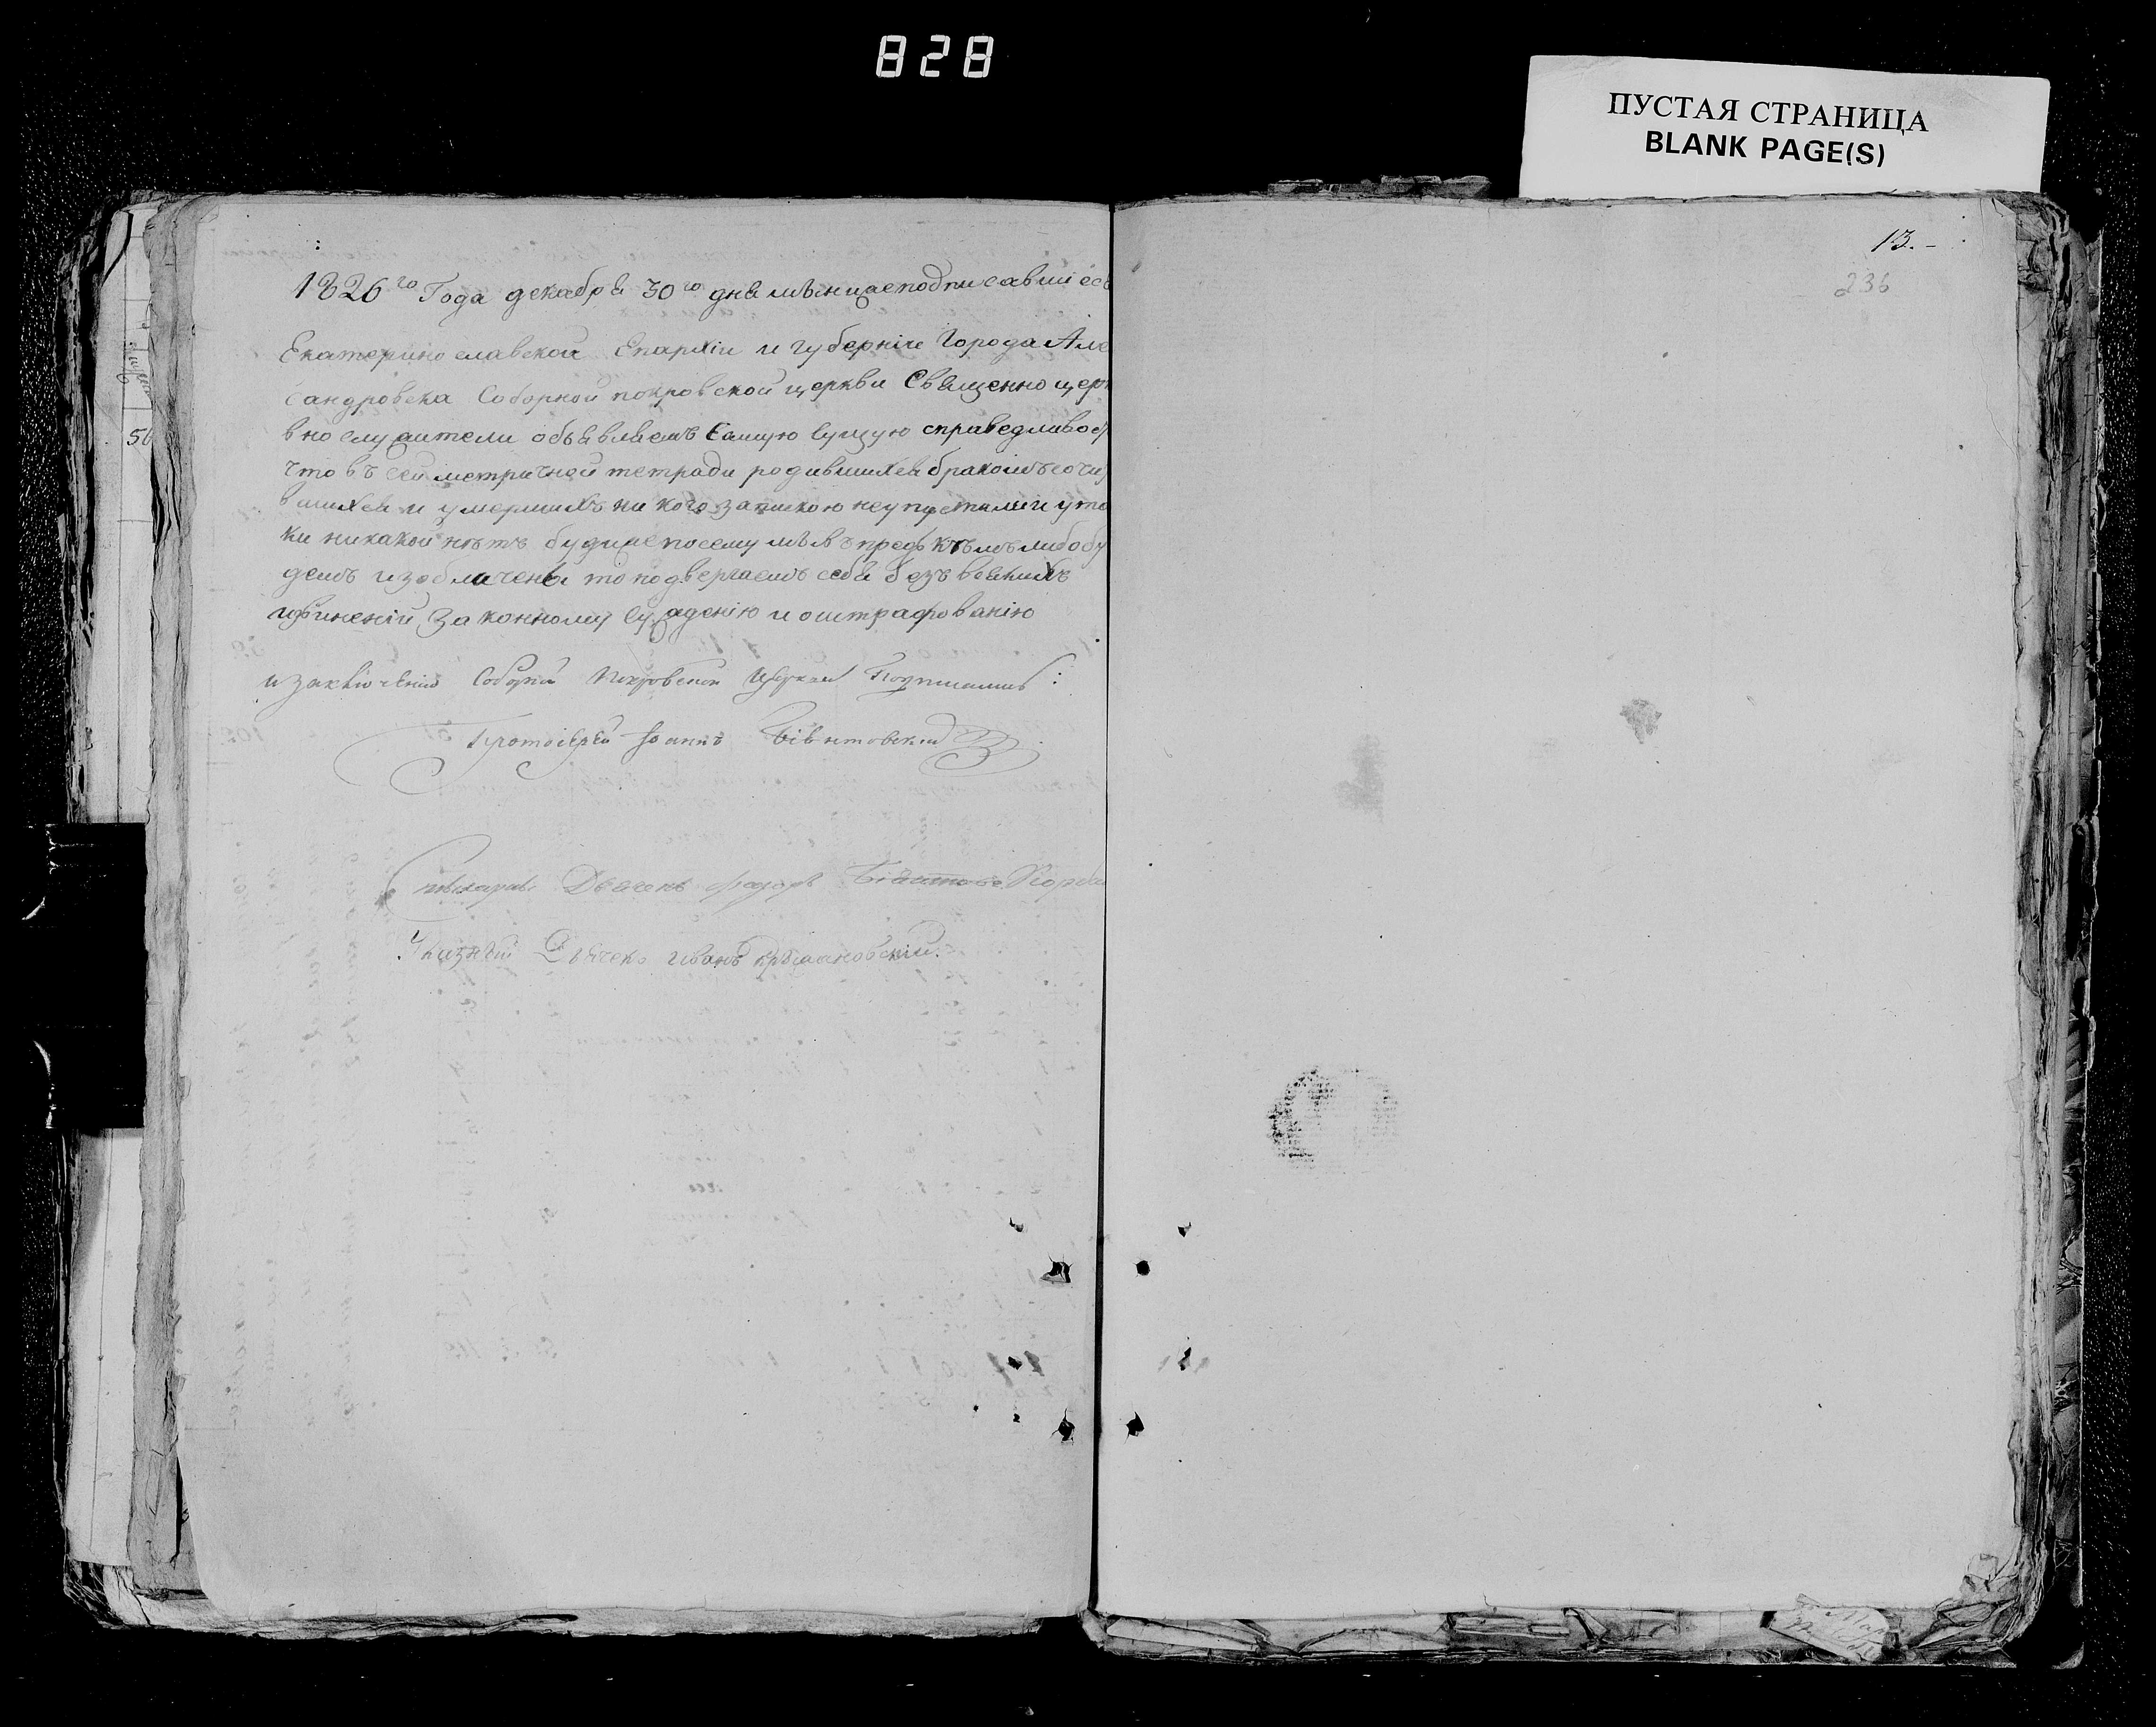 828
ПУСТАЯ СТРАНИЦА
BLANK PAGE(S)
1826го Года декабря 30го дня мы нижеподписавшіесь
Екатеринославской Епархіи и губерніи Города Але
сандровска Соборной покровской церкви Священно церк
вно служители объявляемъ самую сущую справедливос
что въ сей метричной тетради родившихся бракомъ соче
вшихся и умершихъ ни кого запискою неупустили и ута
ки никакой нѣтъ будиже посему мы впредь кѣмъ либо бу
демъ изобличены то подвергаемъ себя безъ всякихъ
извиненій законному сужденію и оштрафованію
и заключенію Соборной Покровской Церкви
Протоіерей Іоаннъ
Дьячекъ Федоръ
Дьячекъ Иванъ
13.-
236
56